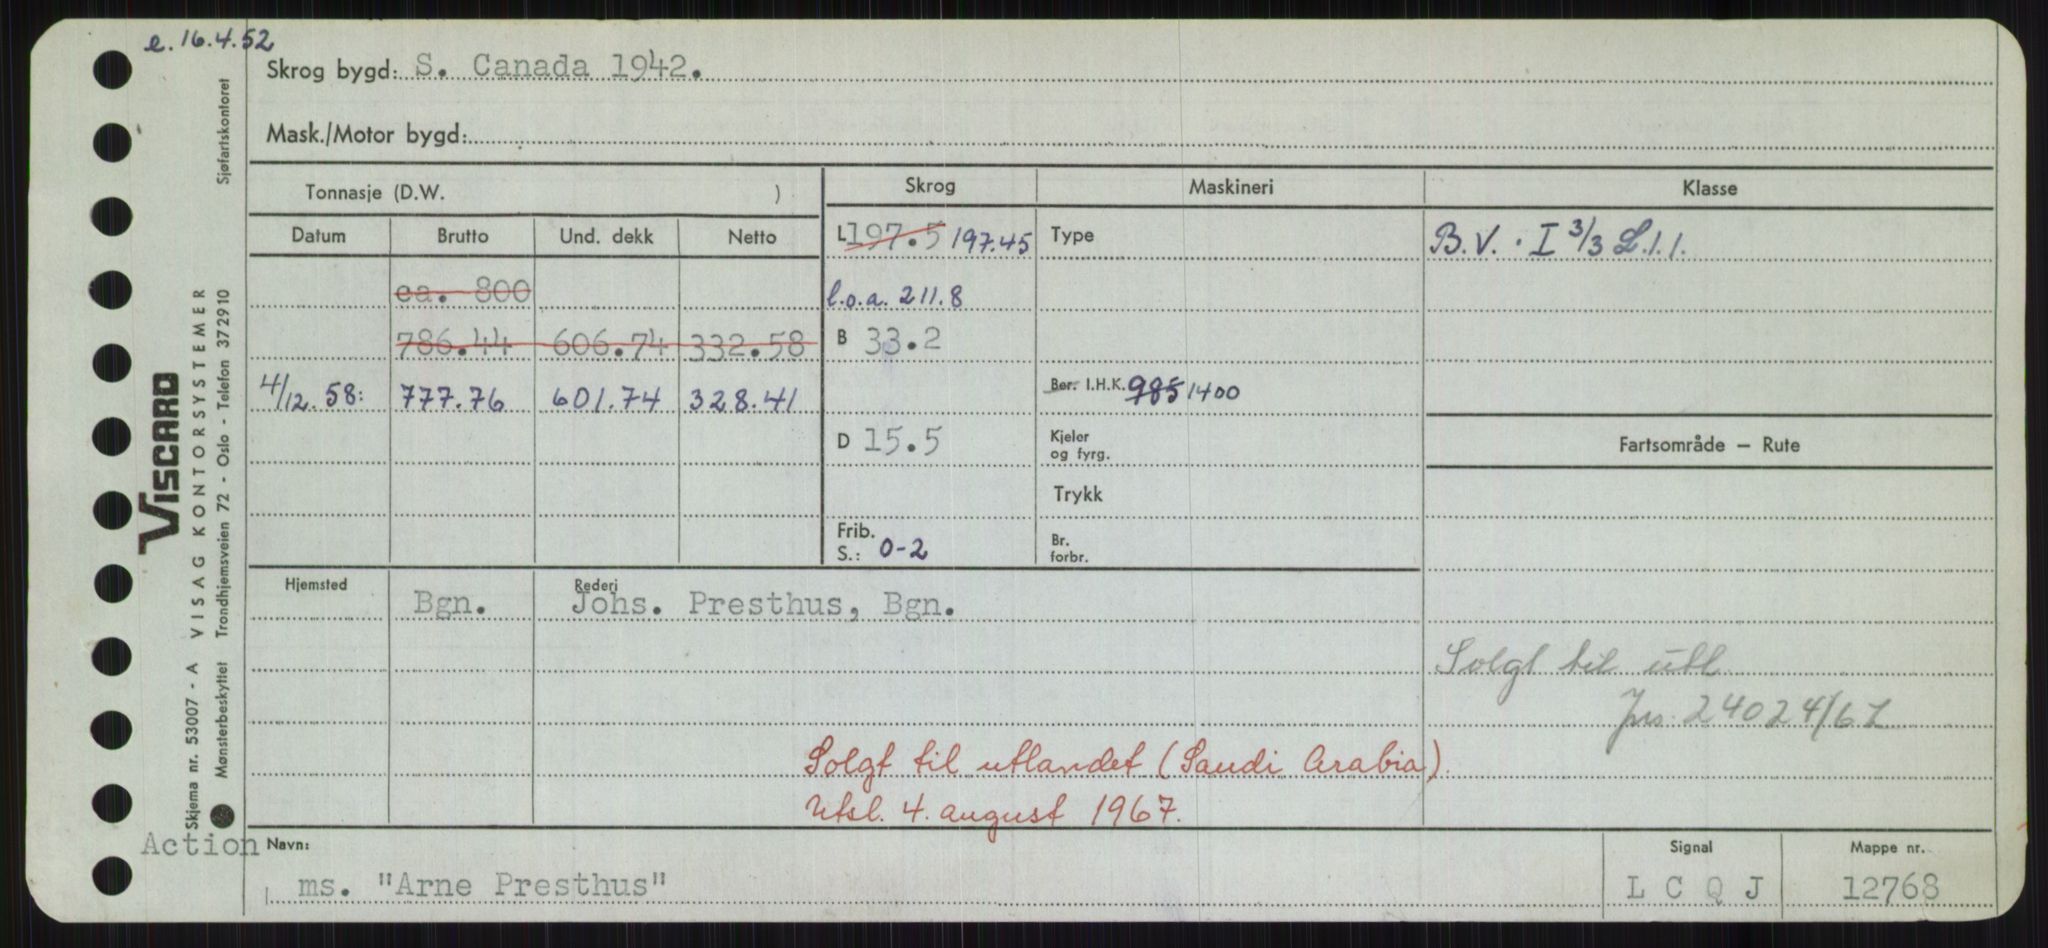 e. 16.4.52
Skrog bygd: S. Canada 1942.
Mask./Motor bygd:
Tonnasje (D.W. )
Skrog
Maskineri
Klasse
Datum Brutto Und. dekk Netto
L 197.5 197.45
Type
B.V. · I 3/3 L.1.1.
ca. 800
l.o.a. 211.8
786.44 606.74 332.58
B 33.2
4/12.58: 777.76 601.74 328.41
Ber. I.H.K. 985 1400
D 15.5
Kjeler
og fyrg.
Fartsområde — Rute
Trykk
Frib.
S.: 0-2
Br.
forbr.
Hjemsted
Rederi
Bgn. Johs. Presthus, Bgn.
Solgt til utl.
24024/67
Solgt til utlandet (Saudi Arabia).
Utsl. 4. august 1967.
Action
Navn:
ms. "Arne Presthus"
Signal
L C Q J
Mappe nr.
12768
VISCARD
VISAG KONTORSYSTEMER
Skjema nr. 53007 - A
Mønsterbeskyttet Trondhjemsveien 72 - Oslo - Telefon 372910
Sjøfartskontoret